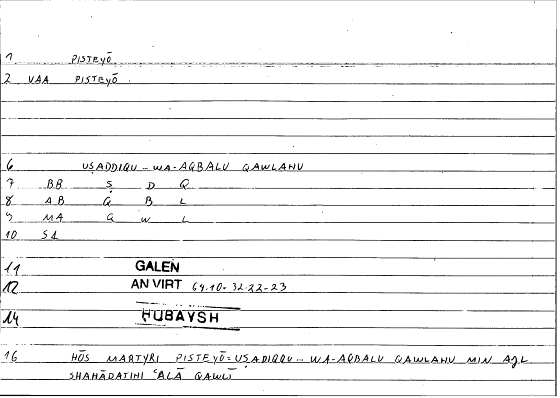 1 PISTEYŌ
2 VAA PISTEYŌ
6 UṢADDIQU -- WA-AQBALU QAWLAHU
7 BB Ṣ D Q
8 AB Q B L
9 MA Q W L
10 S1
11 GALEN
12 AN VIRT 64.10-32.22-23
14 ḤUBAYSH
16 HŌS MARTYRI PISTEYŌ=USADIQQU -- WA-AQBALU QAWLAHU MIN AJL
SHAHĀDATIHI ʿALĀ QAWLĪ